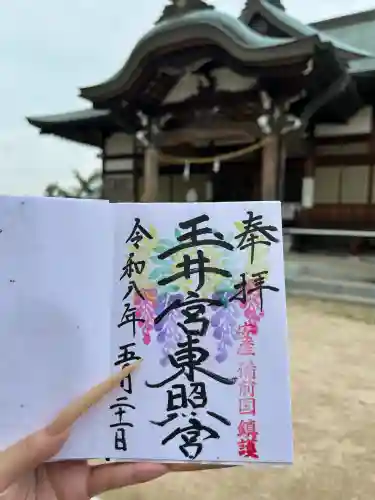 奉拝
安産 備前国鎮護
玉井宮東照宮
令和八年五月二十一日